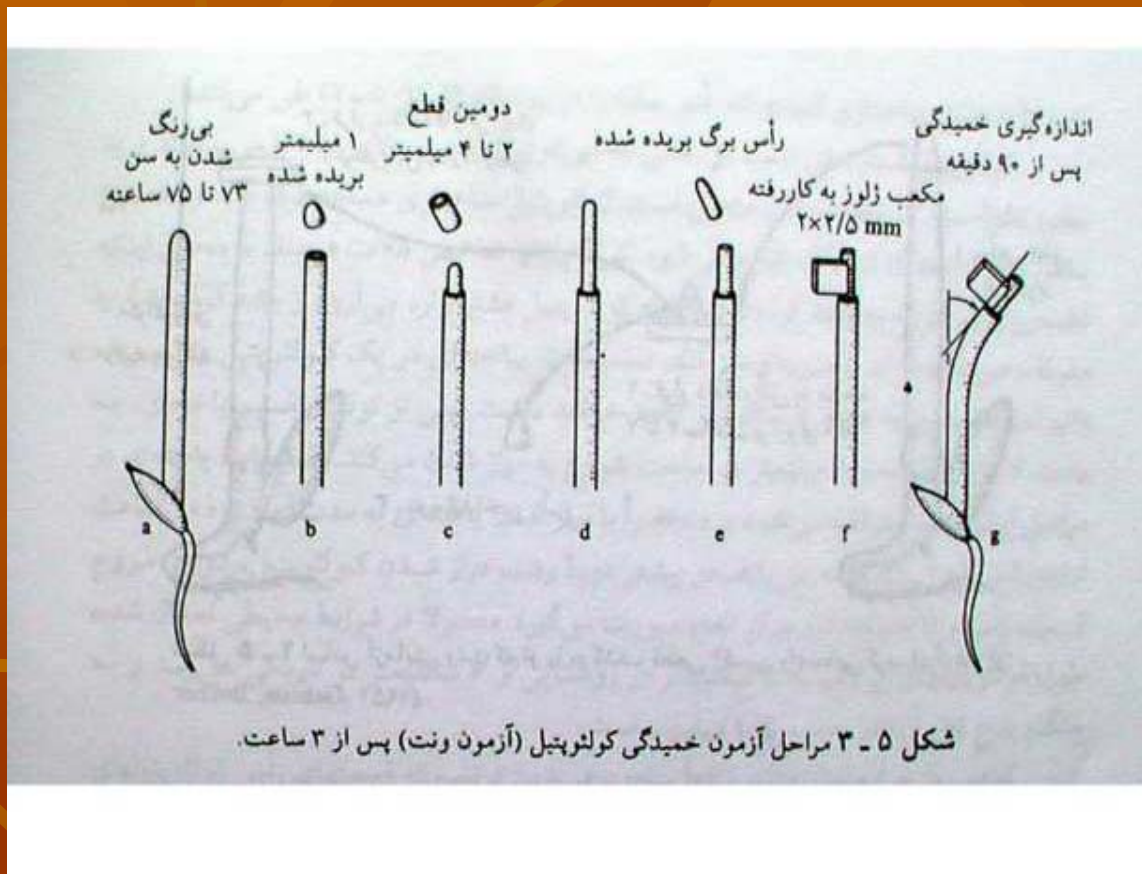 بی‌رنگ
شدن به سن
۷۳ تا ۷۵ ساعته
۱ میلیمتر
بریده شده
دومین قطع
۲ تا ۴ میلمیتر
رأس برگ بریده شده
مکعب ژلوز به کاررفته
۲×۲/۵ mm
اندازه‌گیری خمیدگی
پس از ۹۰ دقیقه
a
b
c
d
e
f
g
شکل ۵ ـ ۳ مراحل آزمون خمیدگی کولئوپتیل (آزمون ونت) پس از ۳ ساعت.